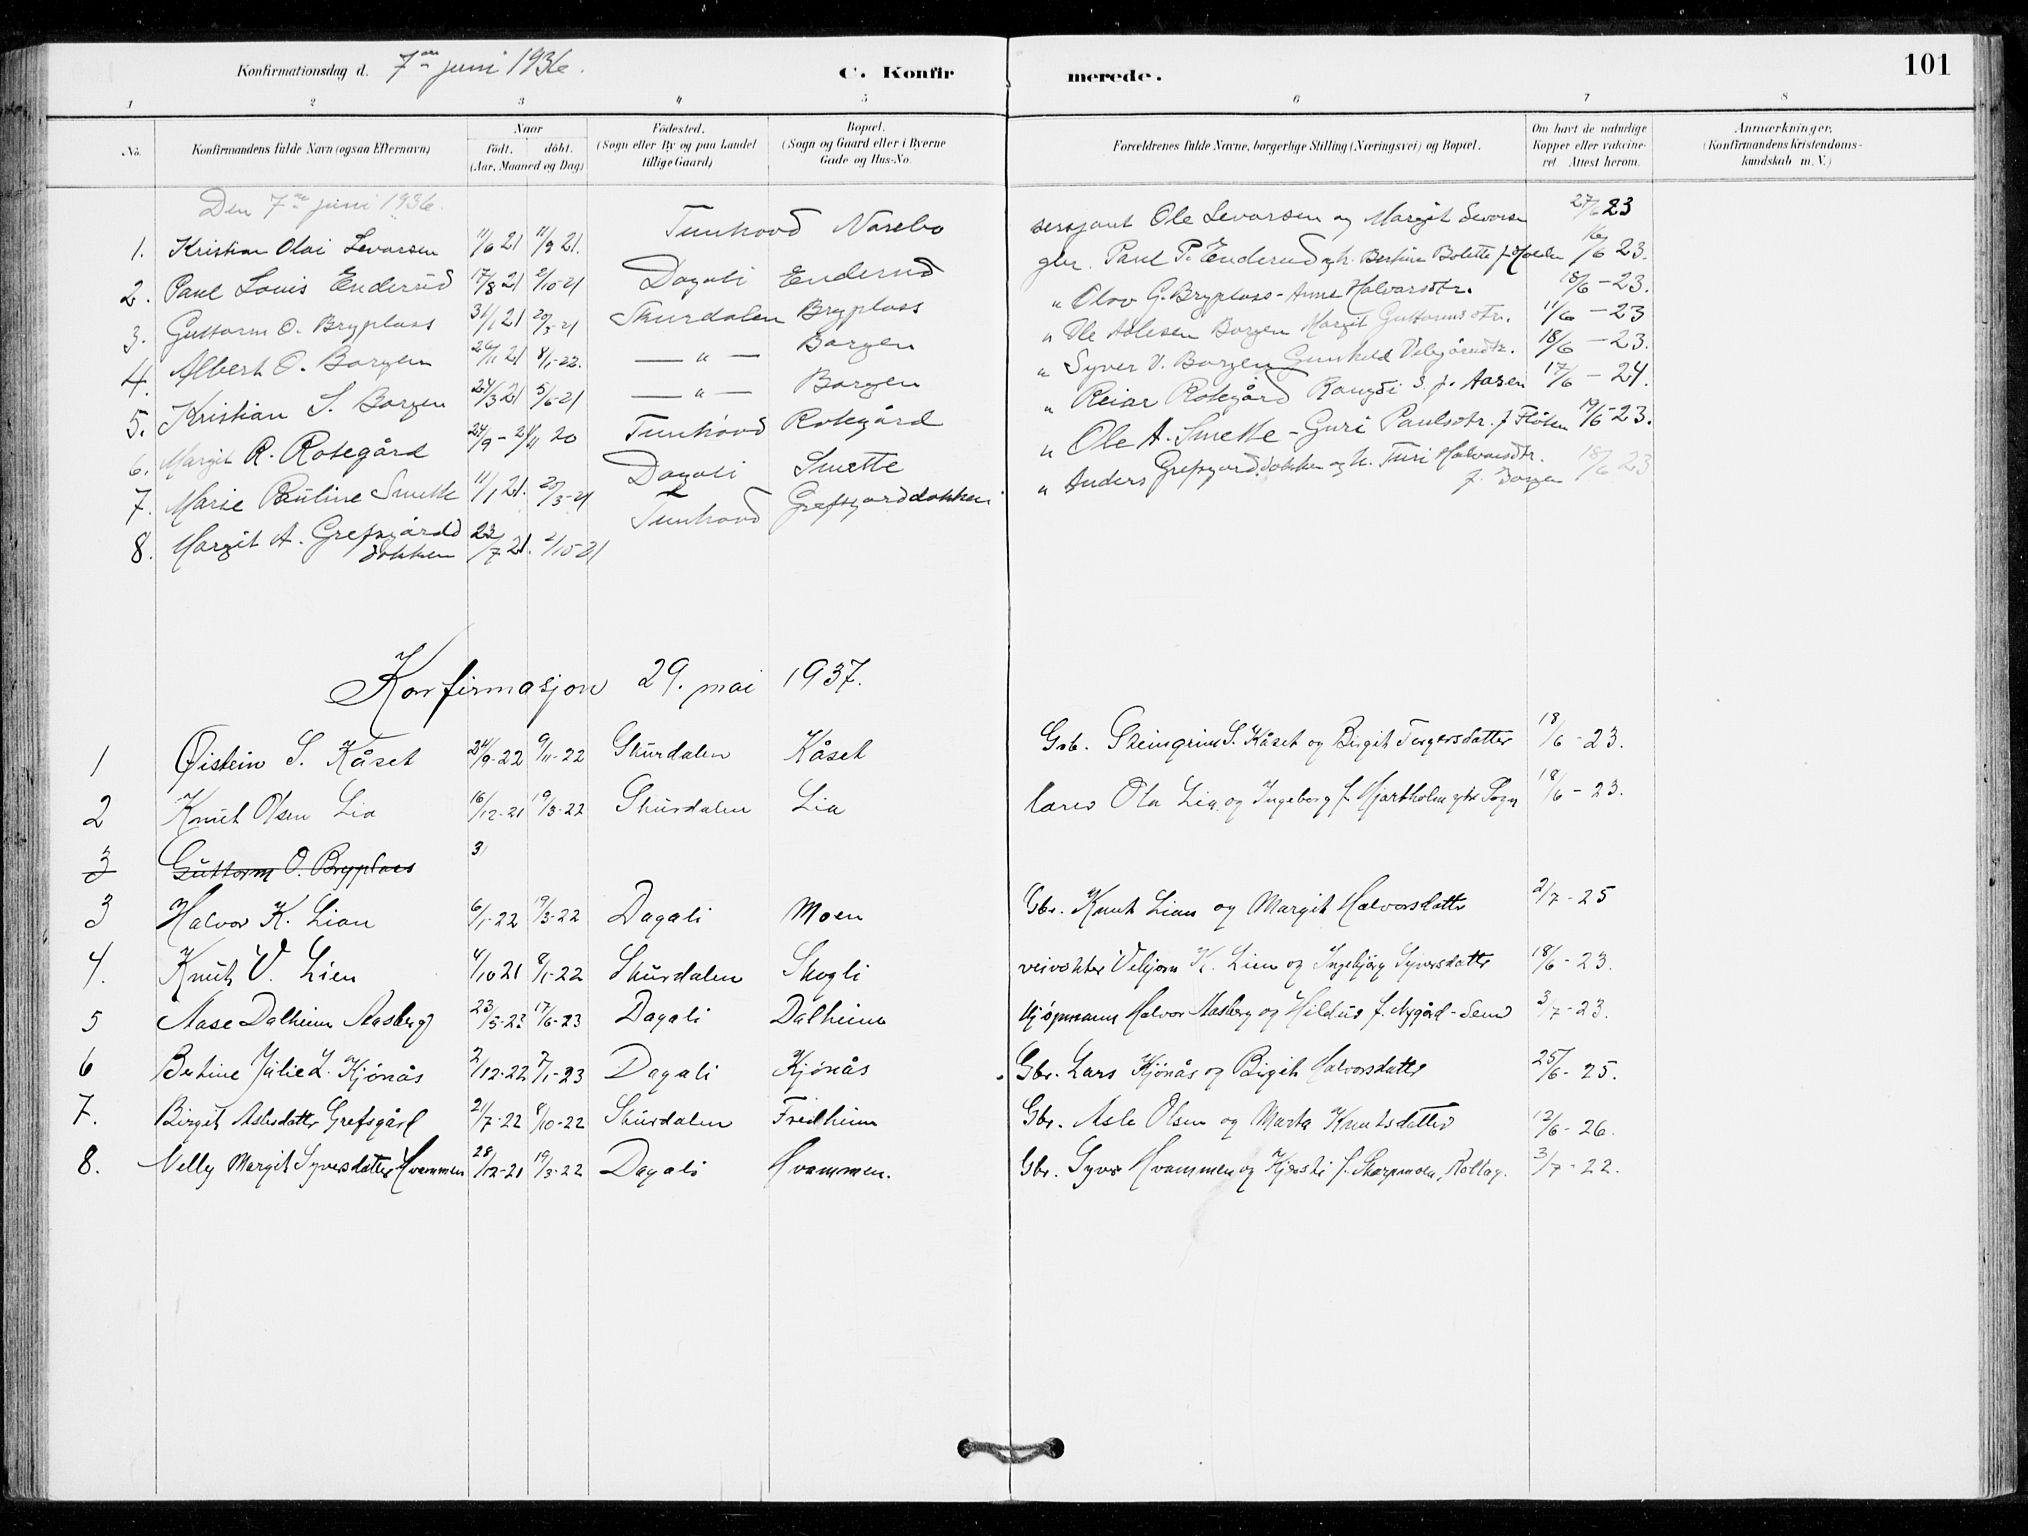 Konfirmationsdag d. 7de juni 1936. C. Konfirmerede. 101
1 2 3 4 5 6 7 8
No. Konfirmandens fulde Navn (ogsaa Efternavn) Naar født. døbt. (Aar, Maaned og Dag) Fødested. (Sogn eller By og paa Landet tillige Gaard) Bopæl. (Sogn og Gaard eller i Byerne Gade og Hus-No. Forældrenes fulde Navne, borgerlige Stilling (Næringsvei) og Bopæl. Om havt de naturlige Kopper eller vaccineret Attest herom. Anmærkninger, (Konfirmandens Kristendomskundskab m. V.)
Den 7de juni 1936.
1. Kristian Olai Sevarsen 11/6 21 11/9 21. Tunhovd Norebo sersjant Ole Sevarsen og Margit Sevarsen 27/6 23
2. Paul Louis Enderud 17/8 21 2/10-21 Dagali Enderud gbr. Paul P. Enderud og h. Bertine Bolette f. Holden 16/6 23.
3. Guttorm O. Brypлass 31/1 21 20/3-21 Skurdalen Bryplass " Olav G. Bryplass - Anne Halvorsdtr. 18/6-23.
4. Albert O. Borgen 26/11 21 8/1-22. — " — Borgen " Ole Aslesen Borgen Margit Guttormsdtr. 11/6-23
5. Kristian S. Borgen 24/3 21 5/6-21 — " — Borgen " Syver V. Borgen Gunhild Vebjørnsdtr. 18/6-23.
6. Margit R. Rotegård 24/9- 21/11 20 Tunhovd Rotegård " Reiar Rotegård Rangdi S. f. Aasen 17/6-24.
7. Marie Pauline Smette 11/1 21. 20/3-21 Dagali Smette " Ole A. Smette - Guri Paulsdtr. f. Fløten 19/6-23.
8. Margit A. Grefsgård dokken 23/7 21. 2/10-21 Tunhovd Grefsgarddokken " Anders Grefsgarddokken og h. Turi Halvorsdtr. f. Borgen 18/6 23
Konfirmasjon 29. mai 1937.
1 Øistein S. Kåset 24/9-22 9/11-22 Skurdalen Kåset Gbr. Steingrim S. Kåset og Birgit Torgersdatter 18/6-23.
2 Knut Olsen Lia 16/12-21 19/3-22 Skurdalen Lia Ola Lia og Ingeborg f. Hjartholm 18/6-23.
3 Guttorm O. Bryplass 3
3 Halvor K. Lian 6/1-22 19/3-22 Dagali Moen Gbr. Knut Lian og Margit Halvorsdatter 2/7-25
4. Knut V. Lien 4/10 21 8/1-22 Skurdalen Skogli veivokter Vebjørn K. Lien og Ingebjørg Syversdatter 18/6-23.
5 Aase Dalheim Aasberg 23/5-23 17/6-23 Dagali Dalheim Kjøpmann Halvor Aasberg og Hildur f. Nygård-Send 3/7-23.
6 Bertine Julie L. Kjönås 2/12-22 7/1-23 Dagali Kjönås Gbr. Lars Kjönås og Birgit Halvorsdatter 25/6-25.
7. Birgit Aslesdatter Grefsgård 21/7-22 8/10-22 Skurdalen Fredheim Gbr. Asle Olsen og Marta Knutsdatter 12/6-26.
8. Nelly Margit Syversdatter Hvammen 28/12-21 19/3-22 Dagali Hvammen. Gbr. Syver Hvammen og Kjersti f. Skarpmoen, Rollag. 3/7-22.